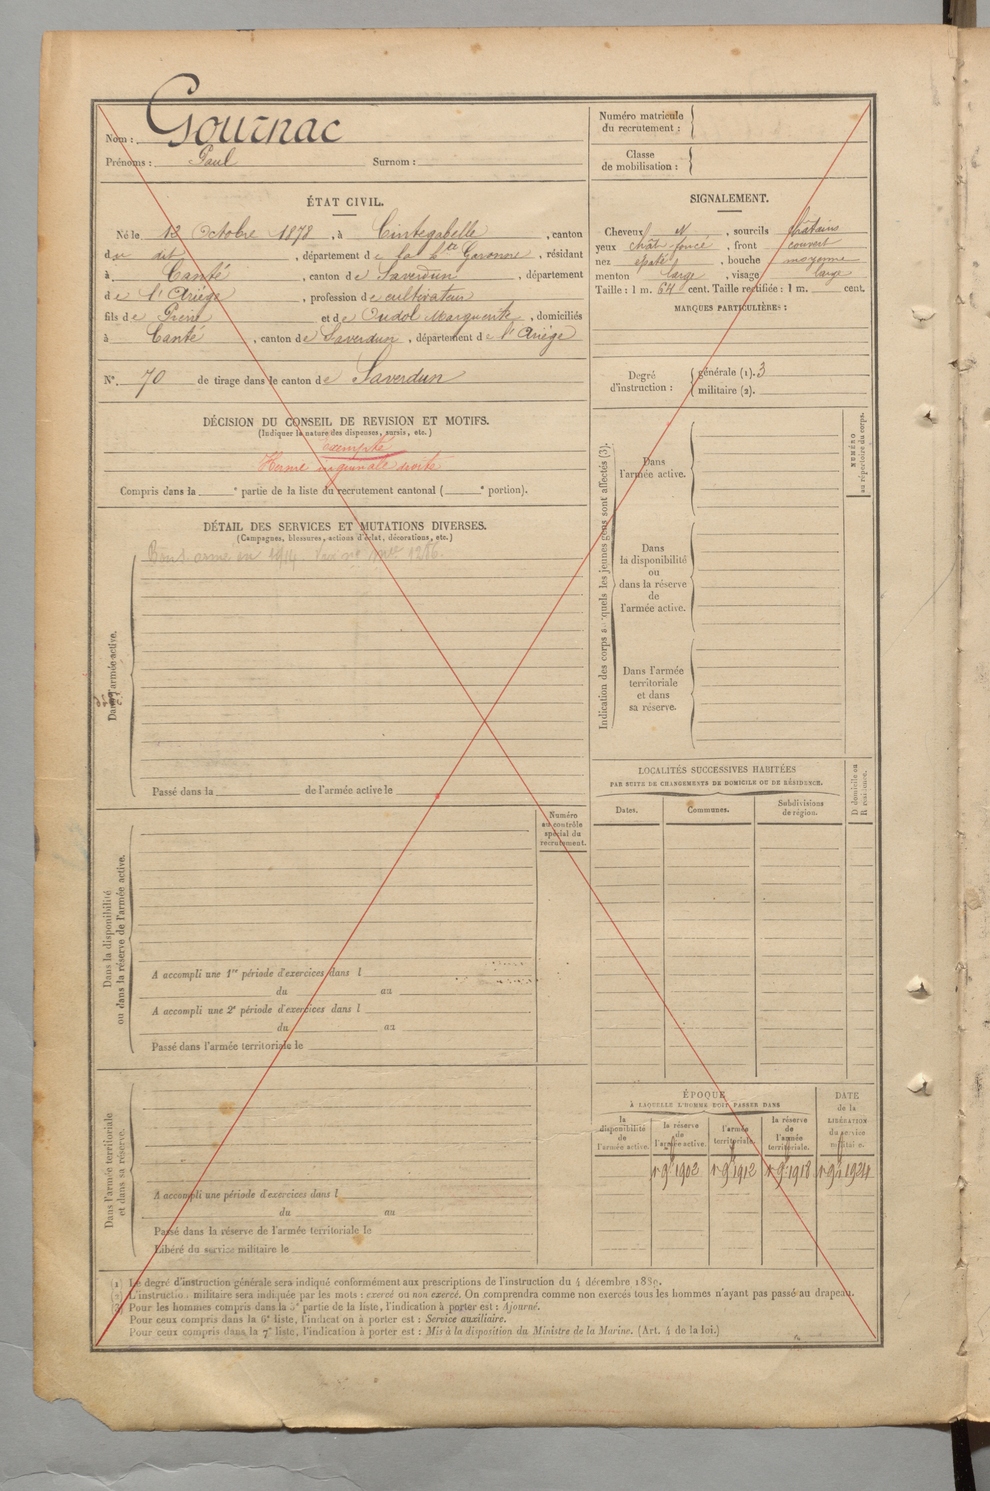 Nom : Gournac
Prénoms : Paul Surnom :
Numéro matricule du recrutement :
Classe de mobilisation :
ÉTAT CIVIL.
Né le 12 Octobre 1878, à Cintegabelle, canton
du dit, département de la Hte Garonne, résidant
à Canté, canton de Saverdun, département
de l'Ariège, profession de cultivateur
fils de Pierre et de Oudol Marguerite, domiciliés
à Canté, canton de Saverdun, département de l'Ariège
N° 70 de tirage dans le canton de Saverdun
SIGNALEMENT.
Cheveux N, sourcils châtains
yeux chât. foncé, front couvert
nez épaté, bouche moyenne
menton large, visage large
Taille : 1 m. 64 cent. Taille rectifiée : 1 m. cent.
MARQUES PARTICULIÈRES :
Degré d'instruction :
générale (1). 3
militaire (2).
DÉCISION DU CONSEIL DE REVISION ET MOTIFS.
(Indiquer la nature des dispenses, sursis, etc.)
Exempté
Hernie inguinale droite
Compris dans la e partie de la liste du recrutement cantonal ( e portion).
DÉTAIL DES SERVICES ET MUTATIONS DIVERSES.
(Campagnes, blessures, actions d'éclat, décorations, etc.)
en 1914. 1286.
Dans l'armée active.
Passé dans la de l'armée active le
Indication des corps auxquels les jeunes gens sont affectés (3).
Dans l'armée active.
Dans la disponibilité ou dans la réserve de l'armée active.
Dans l'armée territoriale et dans sa réserve.
NUMÉRO au répertoire du corps.
LOCALITÉS SUCCESSIVES HABITÉES
PAR SUITE DE CHANGEMENTS DE DOMICILE OU DE RÉSIDENCE.
Dates. Communes. Subdivisions de région.
D. domicile ou R. résidence.
Numéro au contrôle spécial du recrutement.
Dans la disponibilité ou dans la réserve de l'armée active.
A accompli une 1re période d'exercices dans l
du au
A accompli une 2e période d'exercices dans l
du au
Passé dans l'armée territoriale le
Dans l'armée territoriale et dans sa réserve.
A accompli une période d'exercices dans l
du au
Passé dans la réserve de l'armée territoriale le
Libéré du service militaire le
ÉPOQUE
À LAQUELLE L'HOMME DOIT PASSER DANS
la disponibilité de l'armée active.
la réserve de l'armée active.
l'armée territoriale.
la réserve de l'armée territoriale.
DATE de la LIBÉRATION du service militaire.
1902 1912 1918 1924
(1) Le degré d'instruction générale sera indiqué conformément aux prescriptions de l'instruction du 4 décembre 1889.
(2) L'instruction militaire sera indiquée par les mots : exercé ou non exercé. On comprendra comme non exercés tous les hommes n'ayant pas passé au drapeau.
(3) Pour les hommes compris dans la 5e partie de la liste, l'indication à porter est : Ajourné.
Pour ceux compris dans la 6e liste, l'indication à porter est : Service auxiliaire.
Pour ceux compris dans la 7e liste, l'indication à porter est : Mis à la disposition du Ministre de la Marine. (Art. 4 de la loi.)